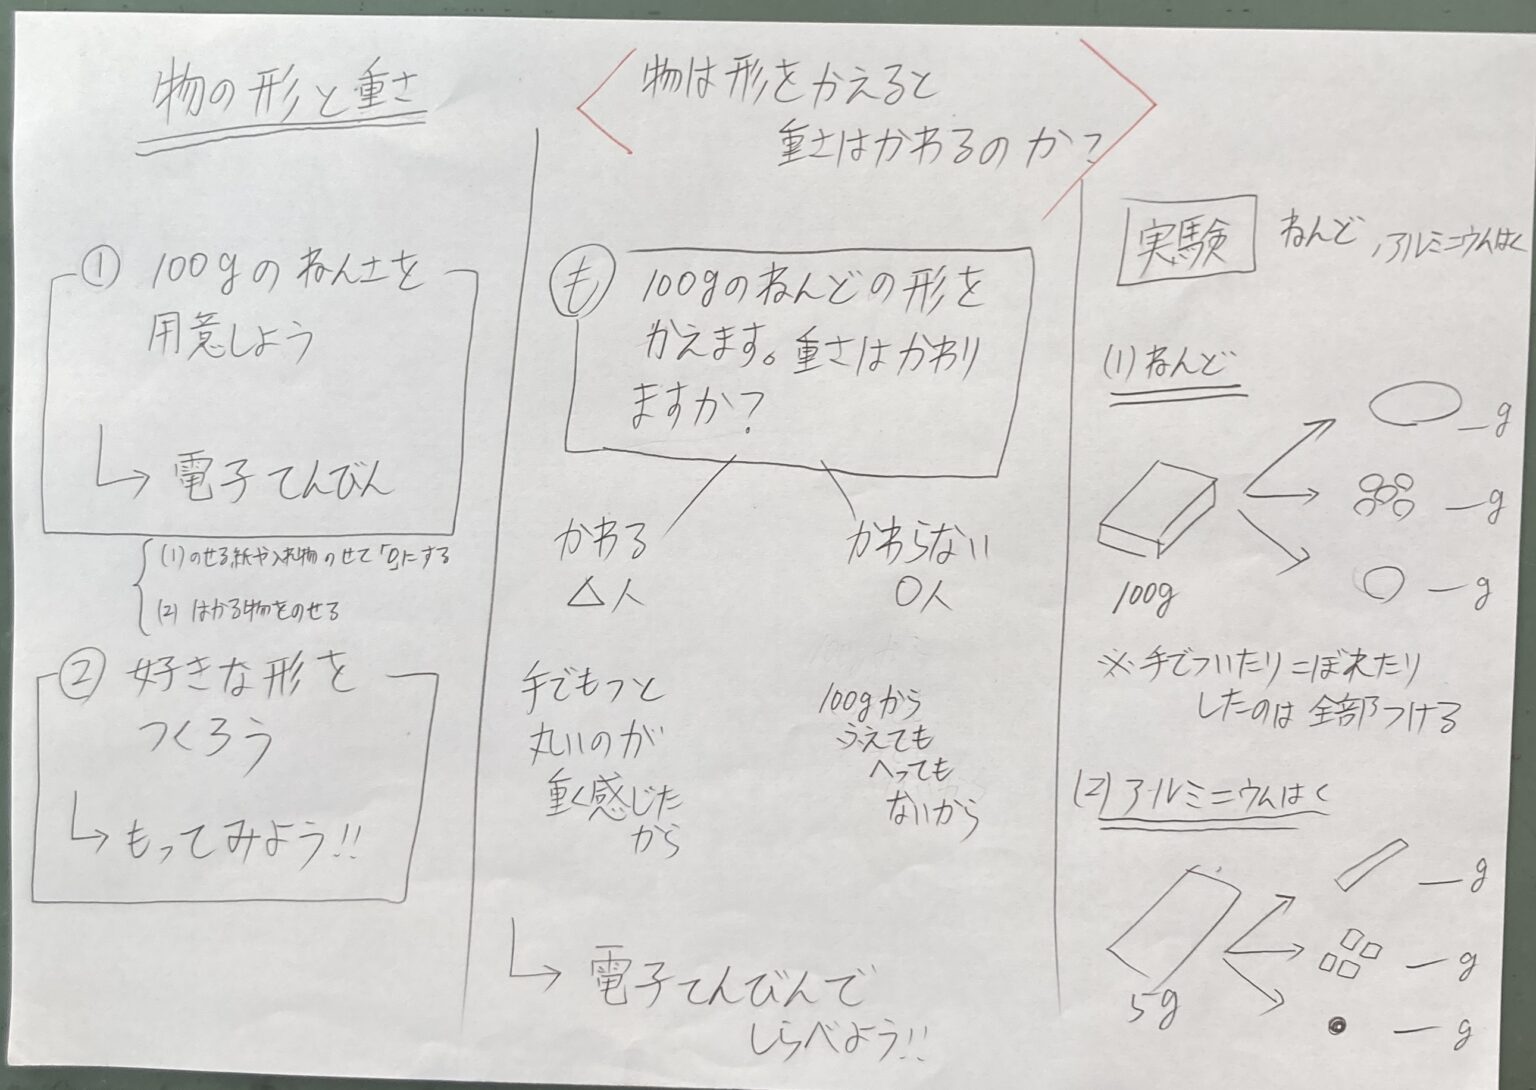 物の形と重さ
① 100gのねん土を
用意しよう
電子てんびん
(1) のせる紙や入れ物のせて「0」にする
(2) はかる物をのせる
② 好きな形を
つくろう
もってみよう!!
物は形をかえると
重さはかわるのか?
も 100gのねんどの形を
かえます。重さはかわり
ますか?
かわる
△人
手でもつと
丸いのが
重く感じた
から
かわらない
○人
100gから
ふえても
へっても
ないから
電子てんびんで
しらべよう!!
実験 ねんど,アルミニウムはく
(1) ねんど
100g
g
g
g
※手でついたりこぼれたり
したのは全部つける
(2) アルミニウムはく
5g
g
g
g